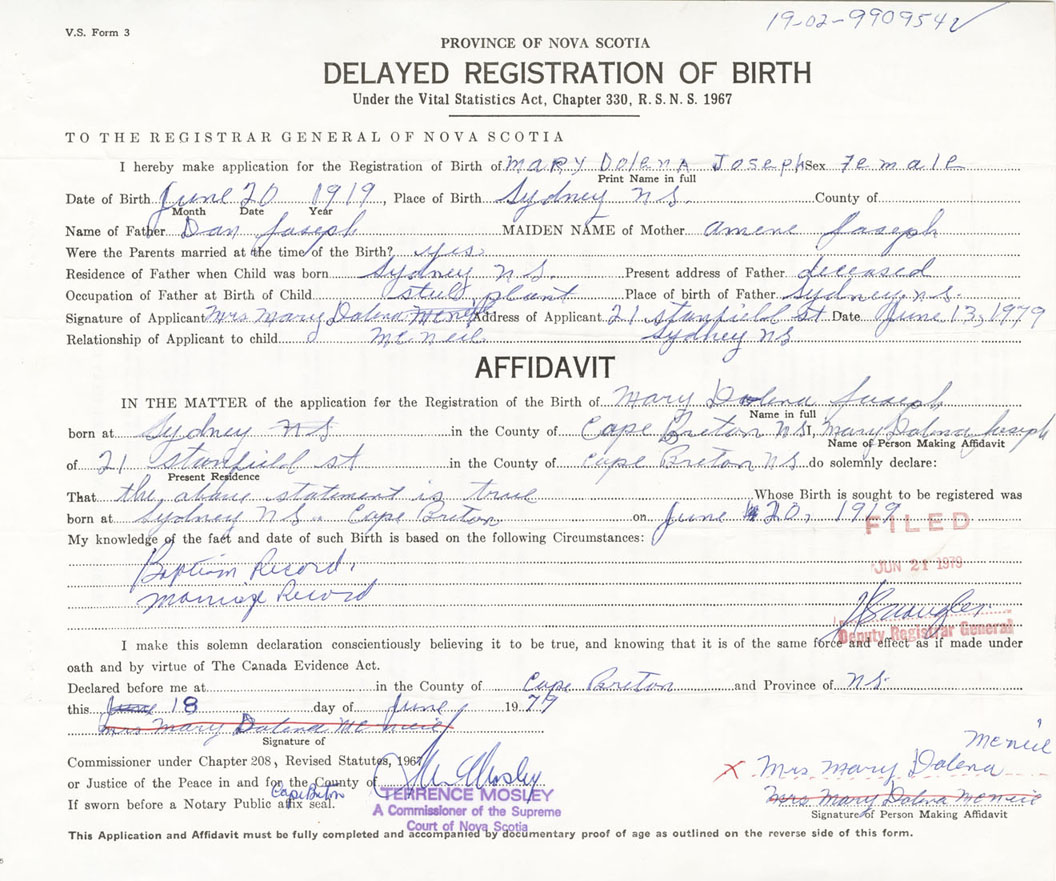 19-02-990954
V.S. Form 3
PROVINCE OF NOVA SCOTIA
DELAYED REGISTRATION OF BIRTH
Under the Vital Statistics Act, Chapter 330, R.S.N.S. 1967
TO THE REGISTRAR GENERAL OF NOVA SCOTIA
I hereby make application for the Registration of Birth of MARY DOLENA JOSEPH Sex Female
Print Name in full
Date of Birth June 20 1919, Place of Birth Sydney N S. County of
Month Date Year
Name of Father Dan Joseph MAIDEN NAME of Mother Amene Joseph
Were the Parents married at the time of the Birth? yes
Residence of Father when Child was born Sydney N S. Present address of Father deceased
Occupation of Father at Birth of Child steel plant Place of birth of Father Sydney N.S.
Signature of Applicant Mrs Mary Dolena McNeil Address of Applicant 21 Stanfield St Date June 13, 1979
Relationship of Applicant to child McNeil Sydney NS
AFFIDAVIT
IN THE MATTER of the application for the Registration of the Birth of Mary Dolena Joseph
Name in full
born at Sydney NS in the County of Cape Breton NS I, Mary Dolena Joseph
Name of Person Making Affidavit
of 21 Stanfield st in the County of Cape Breton NS do solemnly declare:
Present Residence
That the above statement is true Whose Birth is sought to be registered was
born at Sydney NS. Cape Breton on June 20, 1919
FILED
My knowledge of the fact and date of such Birth is based on the following Circumstances:
Baptism Record.
JUN 21 1979
Marriage Record
Deputy Registrar General
I make this solemn declaration conscientiously believing it to be true, and knowing that it is of the same force and effect as if made under
oath and by virtue of The Canada Evidence Act.
Declared before me at in the County of Cape Breton and Province of NS.
this June 18 day of June 19 79
Mrs Mary Dolena McNeil
Signature of
Commissioner under Chapter 208, Revised Statutes, 1967
McNeil
or Justice of the Peace in and for the County of Cape Breton
X Mrs Mary Dolena
TERRENCE MOSLEY
Mrs Mary Dolena McNeil
If sworn before a Notary Public affix seal.
A Commissioner of the Supreme
Signature of Person Making Affidavit
Court of Nova Scotia
This Application and Affidavit must be fully completed and accompanied by documentary proof of age as outlined on the reverse side of this form.